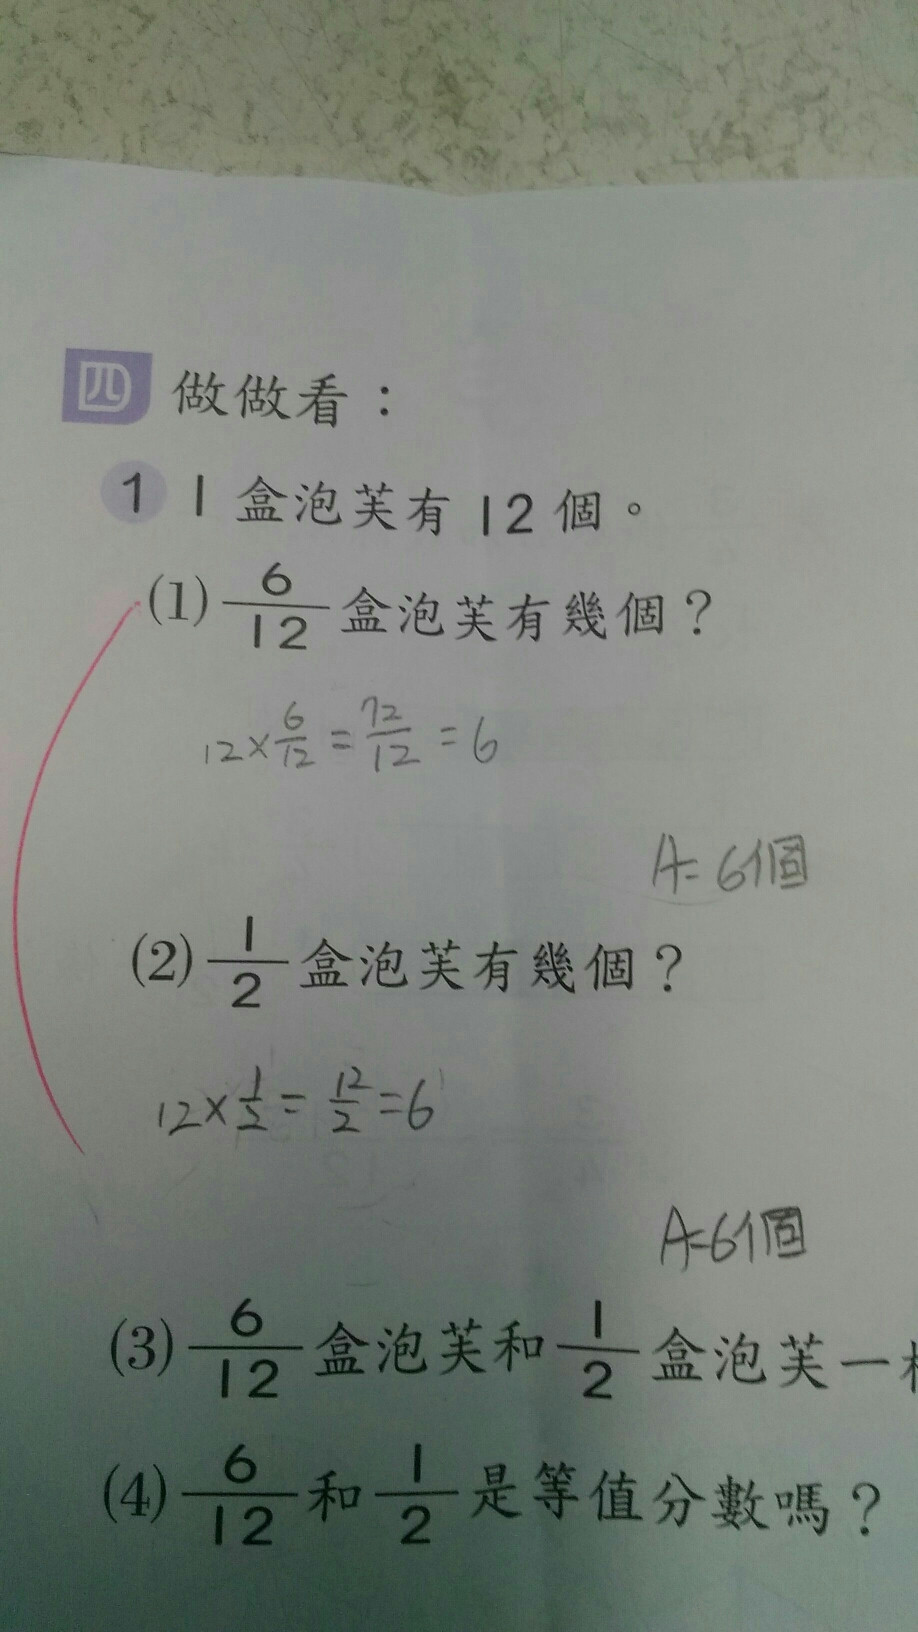 四 做做看：
1 1盒泡芙有12個。
(1) 6/12 盒泡芙有幾個？
12×6/12=72/12=6
A=6個
(2) 1/2 盒泡芙有幾個？
12×1/2=12/2=6
A=6個
(3) 6/12 盒泡芙和 1/2 盒泡芙一
(4) 6/12 和 1/2 是等值分數嗎？